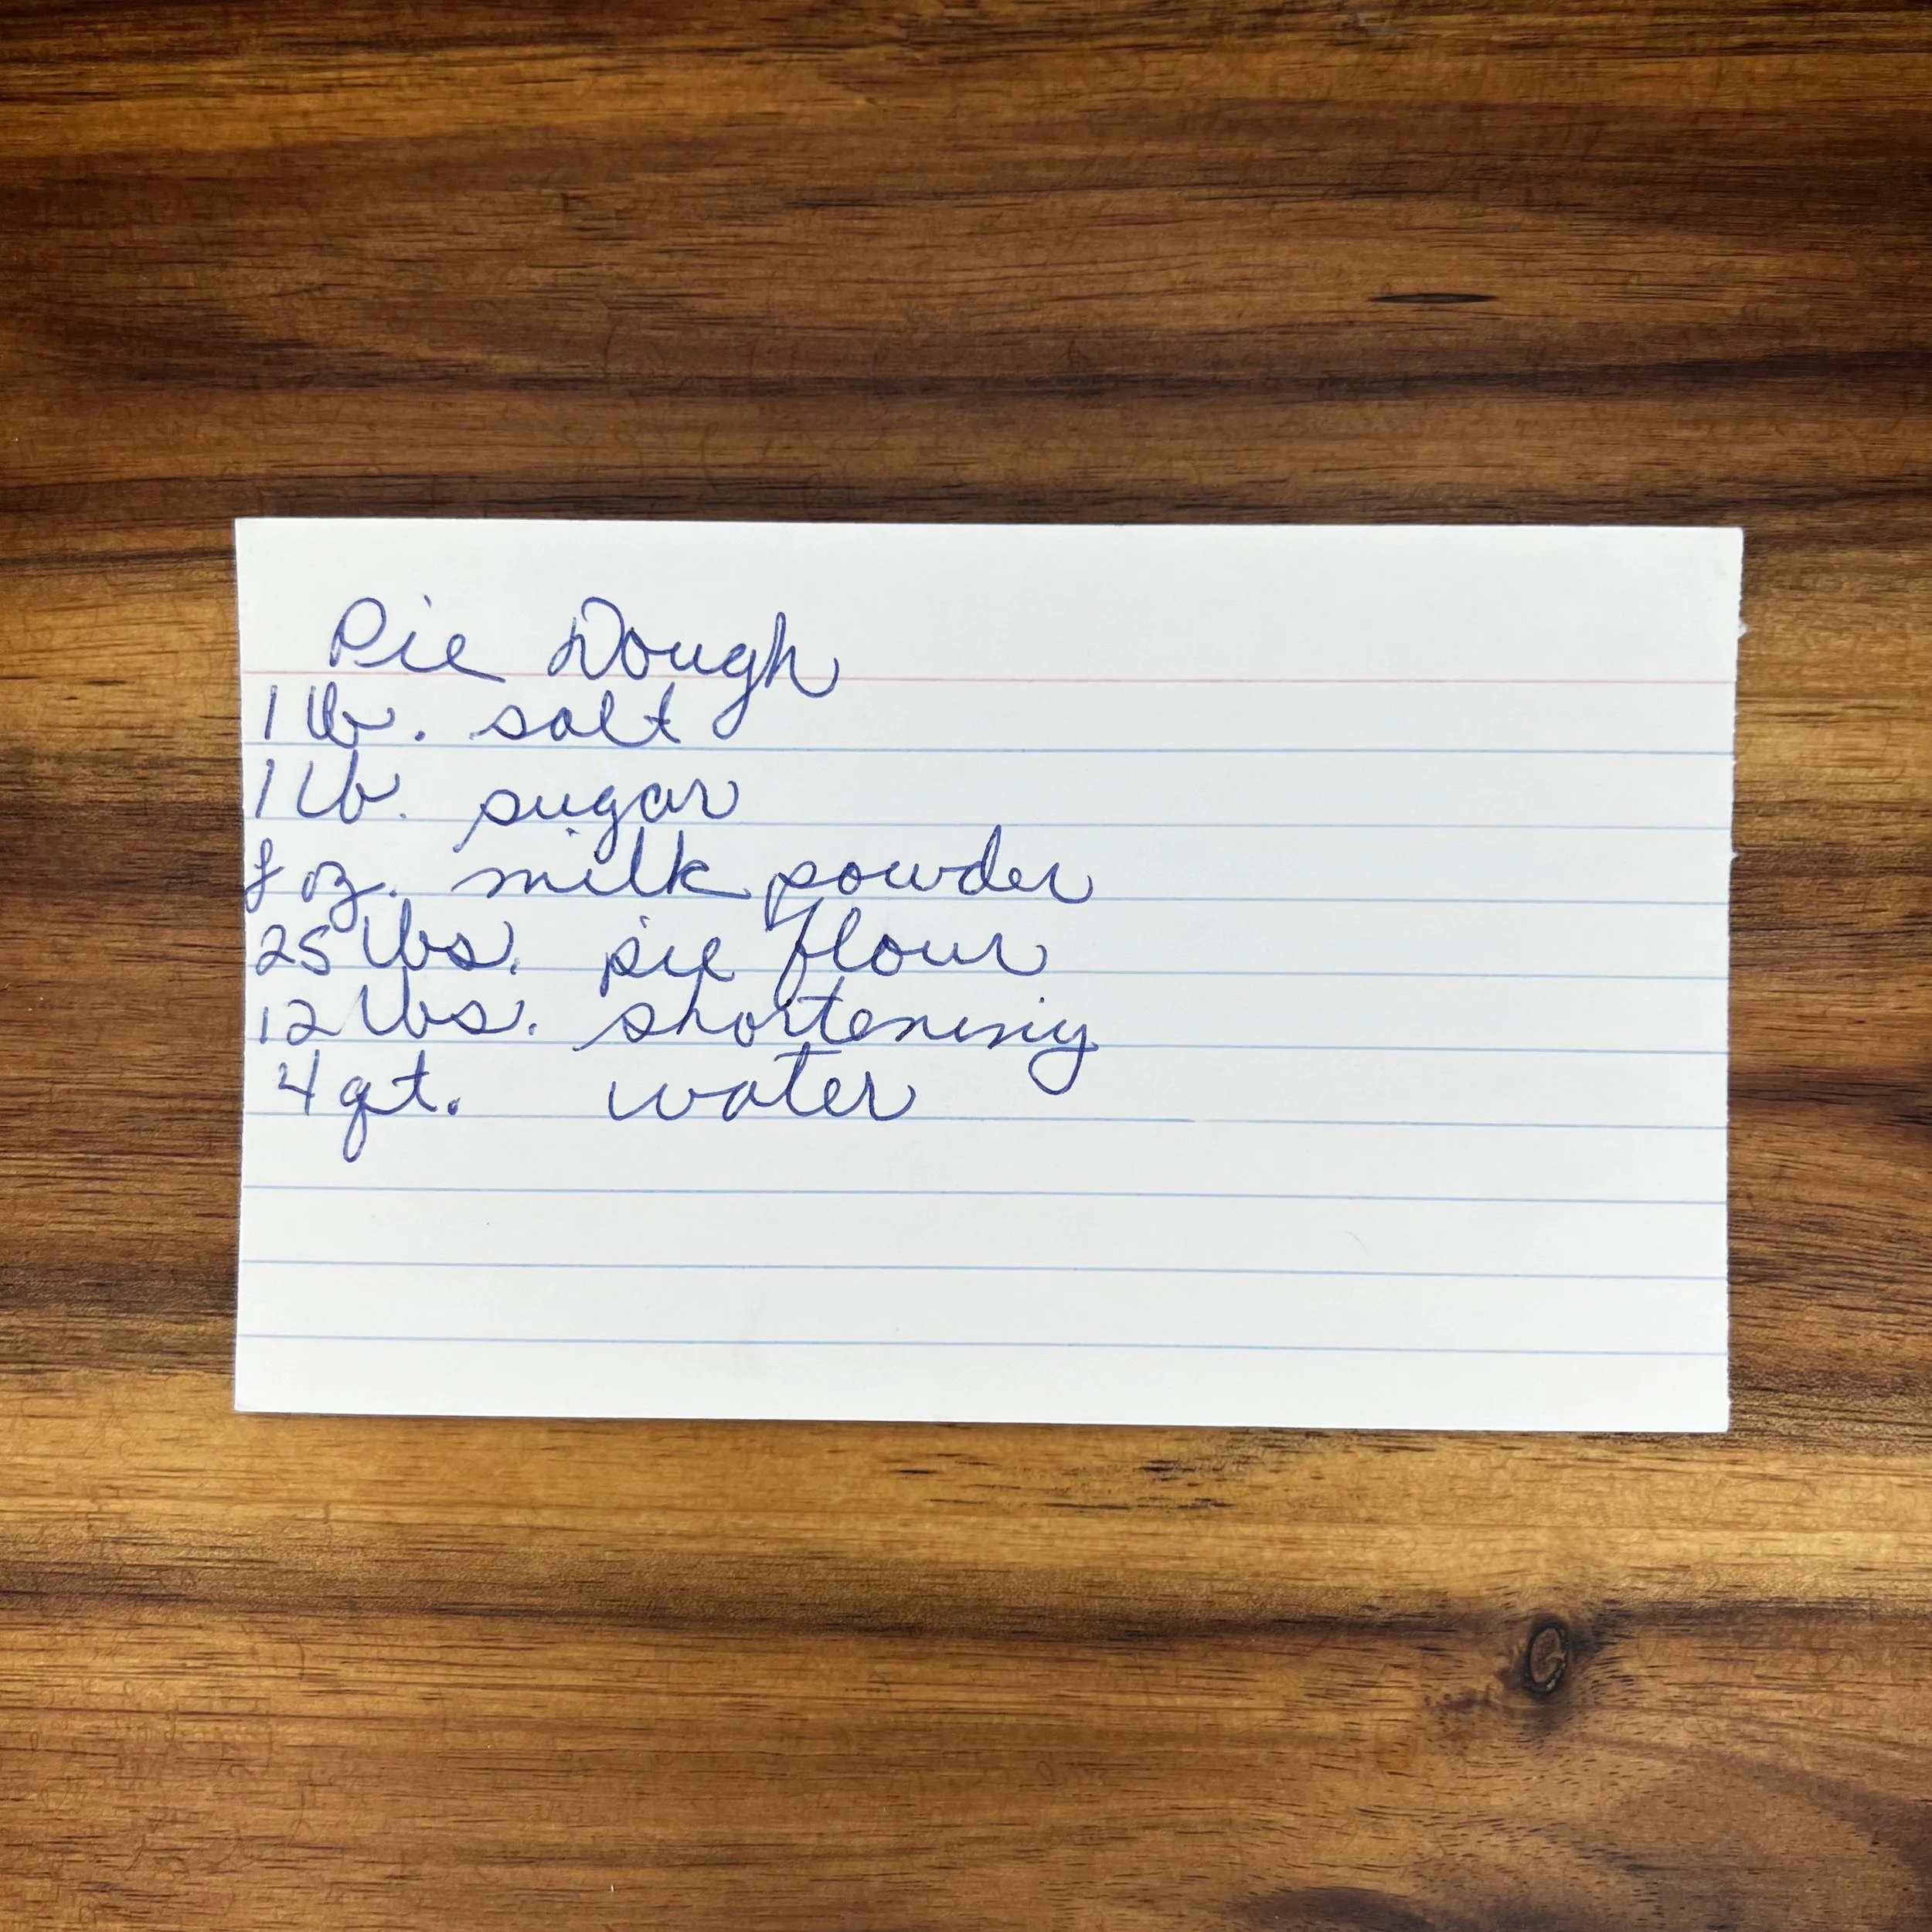 Pie Dough
1 lb. salt
1 lb. sugar
8 oz. milk powder
25 lbs. pie flour
12 lbs. shortening
4 qt. water